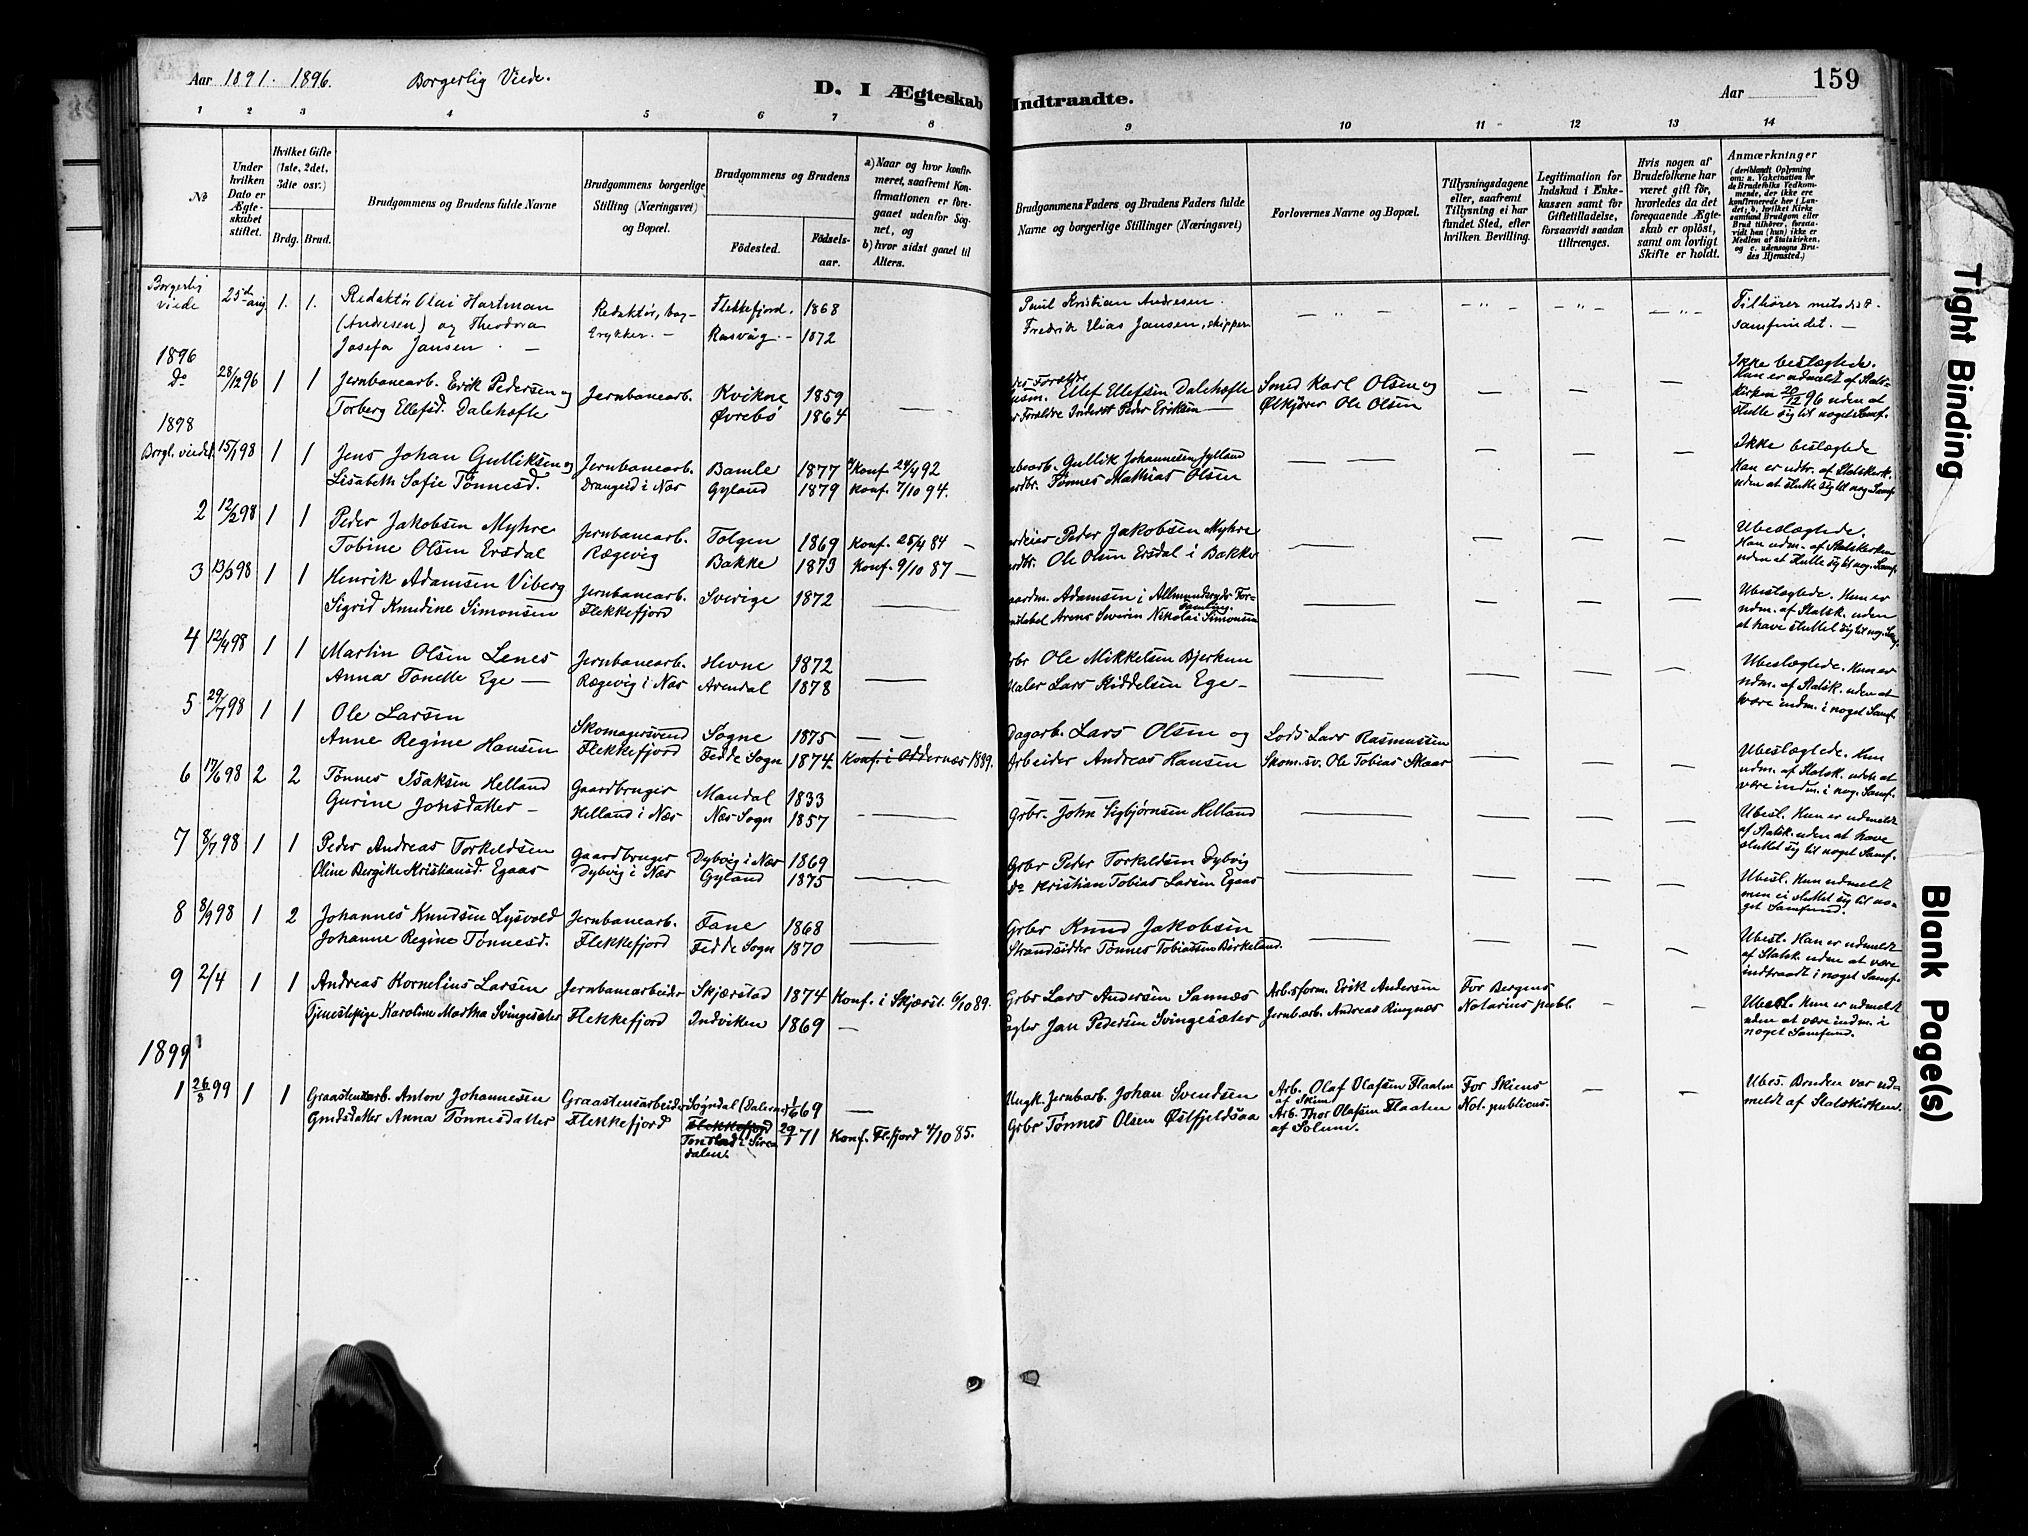 Aar 1891. 1896. Borgerlig Viede.
D. I Ægteskab Indtraadte.
Aar
159
1 2 3 4 5 6 7 8 9 10 11 12 13 14
No
Under hvilken Dato er Ægteskabet stiftet.
Hvilket Gifte (1ste, 2det, 3die osv.)
Brdg. Brud.
Brudgommens og Brudens fulde Navne
Brudgommens borgerlige Stilling (Næringsvei) og Bopæl.
Brudgommens og Brudens
Födested.
Födselsaar.
a) Naar og hvor konfirmeret, saafremt Konfirmationen er foregaaet udenfor Sognet, og
b) hvor sidst gaaet til Alters.
Brudgommens Faders og Brudens Faders fulde Navne og borgerlige Stillinger (Næringsvei)
Forlovernes Navne og Bopæl.
Tillysningsdagene eller, saafremt Tillysning ei har fundet Sted, efter hvilken Bevilling.
Legitimation for Indskud i Enkekassen samt for Giftetilladelse, forsaavidt saadan tiltrænges.
Hvis nogen af Brudefolkene har været gift för, hvorledes da det foregaaende Ægteskab er oplöst, samt om lovligt Skifte er holdt.
Anmærkninger
(deriblandt Oplysning om: a. Vakcination for de Brudefolks Vedkommende, der ikke ere konfirmerede her i Landet, b. hvilket Kirkesamfund Brudgom eller Brud tilhörer, forsaavidt han (hun) ikke er Medlem af Statskirken, og c. udensogns Brudes Hjemsted.)
Borgerlig viede 25de aug 1. 1. Redaktör Olai Hartman (Andresen) og Theodora Josefa Jansen
Redaktör, bogtrykker.
Flekkefjord. 1868
Rasvåg 1872
Paul Kristian Andresen.
Fredrik Elias Jansen, skipper
Tilhörer metodistsamfundet.
1896
Do 28/12 96 1 1 Jernbanearb. Erik Pedersen og Torberg Ellefsd. Dalehefte
Jernbanearb.
Kvikne 1859
Övrebö 1864
Ellef Ellefsen Dalehefte
Forældre Inderst Peder Eriksen
Smed Karl Olsen og
Ölkjörer Ole Olsen
Ikke beslægtede. Han er udmeldt af Statskirken 20/12 96 uden at slutte sig til noget Samf.
1898
Borgl. viedet 15/1 98 1 1 Jens Johan Gulliksen og Lisabeth Sofie Tönnesd.
Jernbanearb. Drangeid i Næs
Bamle 1877 Konf. 24/4 92
Gyland 1879 Konf. 7/10 94.
Gullik Johannesen Jylland
Tönnes Mathias Olsen
Ikke beslægtede Han er udtr. af Statskirk. uden at slutte sig til nog. Samf.
2 12/2 98 1 1 Peder Jakobsen Myhre
Tobine Olsen Ersdal
Jernbanearb. Rægevig
Tolgen 1869 Konf. 25/4 84
Bakke 1873 Konf. 9/10 87
Peder Jakobsen Myhre
Ole Olsen Ersdal i Bakke
Ubeslægtede. Han udm. af Statskirken uden at slutte sig til nog. Samf.
3 13/3 98 1 1 Henrik Adamsen Viberg
Sigrid Knudine Simonsen
Jernbanearb. Flekkefjord
Sverige 1872
Adamsen i Allmundsryds Forsamling.
Arens Severin Nikolai Simonsen
Ubeslægtede. Hun er udm. af Statsk. uden at have sluttet sig til nog. Samf.
4 12/4 98 1 1 Martin Olsen Lenes
Anna Tonette Ege
Jernbanearb. Rægevig i Næs
Hevne 1872
Arendal 1878
Ole Mikkelsen Bjerkun
Maler Lars Kiddelsen Ege
Ubeslægtede. Hun er udm. af Statsk. uden at være indm. i noget Samf.
5 29/7 98 1 1 Ole Larsen
Anne Regine Hansen
Skomagersvend Flekkefjord
Sogne 1875
Fedde Sogn 1874 Konf. i Oddernæs 1889.
Dagarb. Lars Olsen og
Arbeider Andreas Hansen
Lods Lars Rasmussen
Skom.sv. Ole Tobias Skaar
Ubeslægtede. Hun udm. af Statsk. uden at være indm. i nog. Samf.
6 17/6 98 2 2 Tönnes Isaksen Helland
Gurine Jonsdatter
Gaardbruger Helland i Næs
Mandal 1833
Næs Sogn 1857
Grbr. John Sigbjörnsen Helland
Ubesl. Hun er udmeldt af Statsk. uden at have sluttet sig til noget Samf.
7 8/7 98 1 1 Peder Andreas Torkeldsen
Oline Bergitte Kristiansd. Egaas
Gaardbruger Dybvig i Næs
Dybvig i Næs 1869
Gyland 1875
Grbr Peder Torkeldsen Dybvig
Do Kristian Tobias Larsen Egaas
Ubesl. Hun udmeldt men ei sluttet sig til noget Samfund.
8 8/9 98 1 2 Johannes Knudsen Lysvold
Johanne Regine Tönnesd.
Jernbanearb. Flekkefjord
Fane 1868
Fedde Sogn 1870
Grbr Knud Jakobsen
Strandsidder Tönnes Tobiassen Birkeland.
Ubesl. Han er udmeldt af Statsk. uden at være indtraadt i noget Samf.
9 2/4 1 1 Andreas Kornelius Larsen
Tjenestepige Karoline Martha Svingesæter
Jernbanearbeider Flekkefjord
Skjærstad 1874 Konf. i Skjærst. 6/10 89.
Indviken 1869
Grbr Lars Andersen Sannæs
Jan Pedersen Svingesæter
Arb.sform. Erik Andersen
Jernb.arb. Andreas Ringnæs
For Bergens Notarius publ.
Ubesl. Hun er udmeldt uden at være indm. i noget Samfund.
1899
1 26/8 99 1 1 Graastensarb. Anton Johannesen
Gundsdatter Anna Tönnesdatter
Graastensarbeider Flekkefjord
Sogndal (Dalerne) 1/6 69
Flekkefjord
Tonstad i Siredalen 29/1 71 Konf. Fl.fjord 4/10 85.
Ungk. Jernbarb. Johan Svendsen
Grbr Tönnes Olsen Östfjeldsaa
Arb. Olaf Olafsen Flaaten af Skien
Arb. Thor Olafsen Flaaten af Solum.
For Skiens Not. publicus.
Ubes. Bruden var udmeldt af Statskirken.
Tight Binding
Blank Page(s)